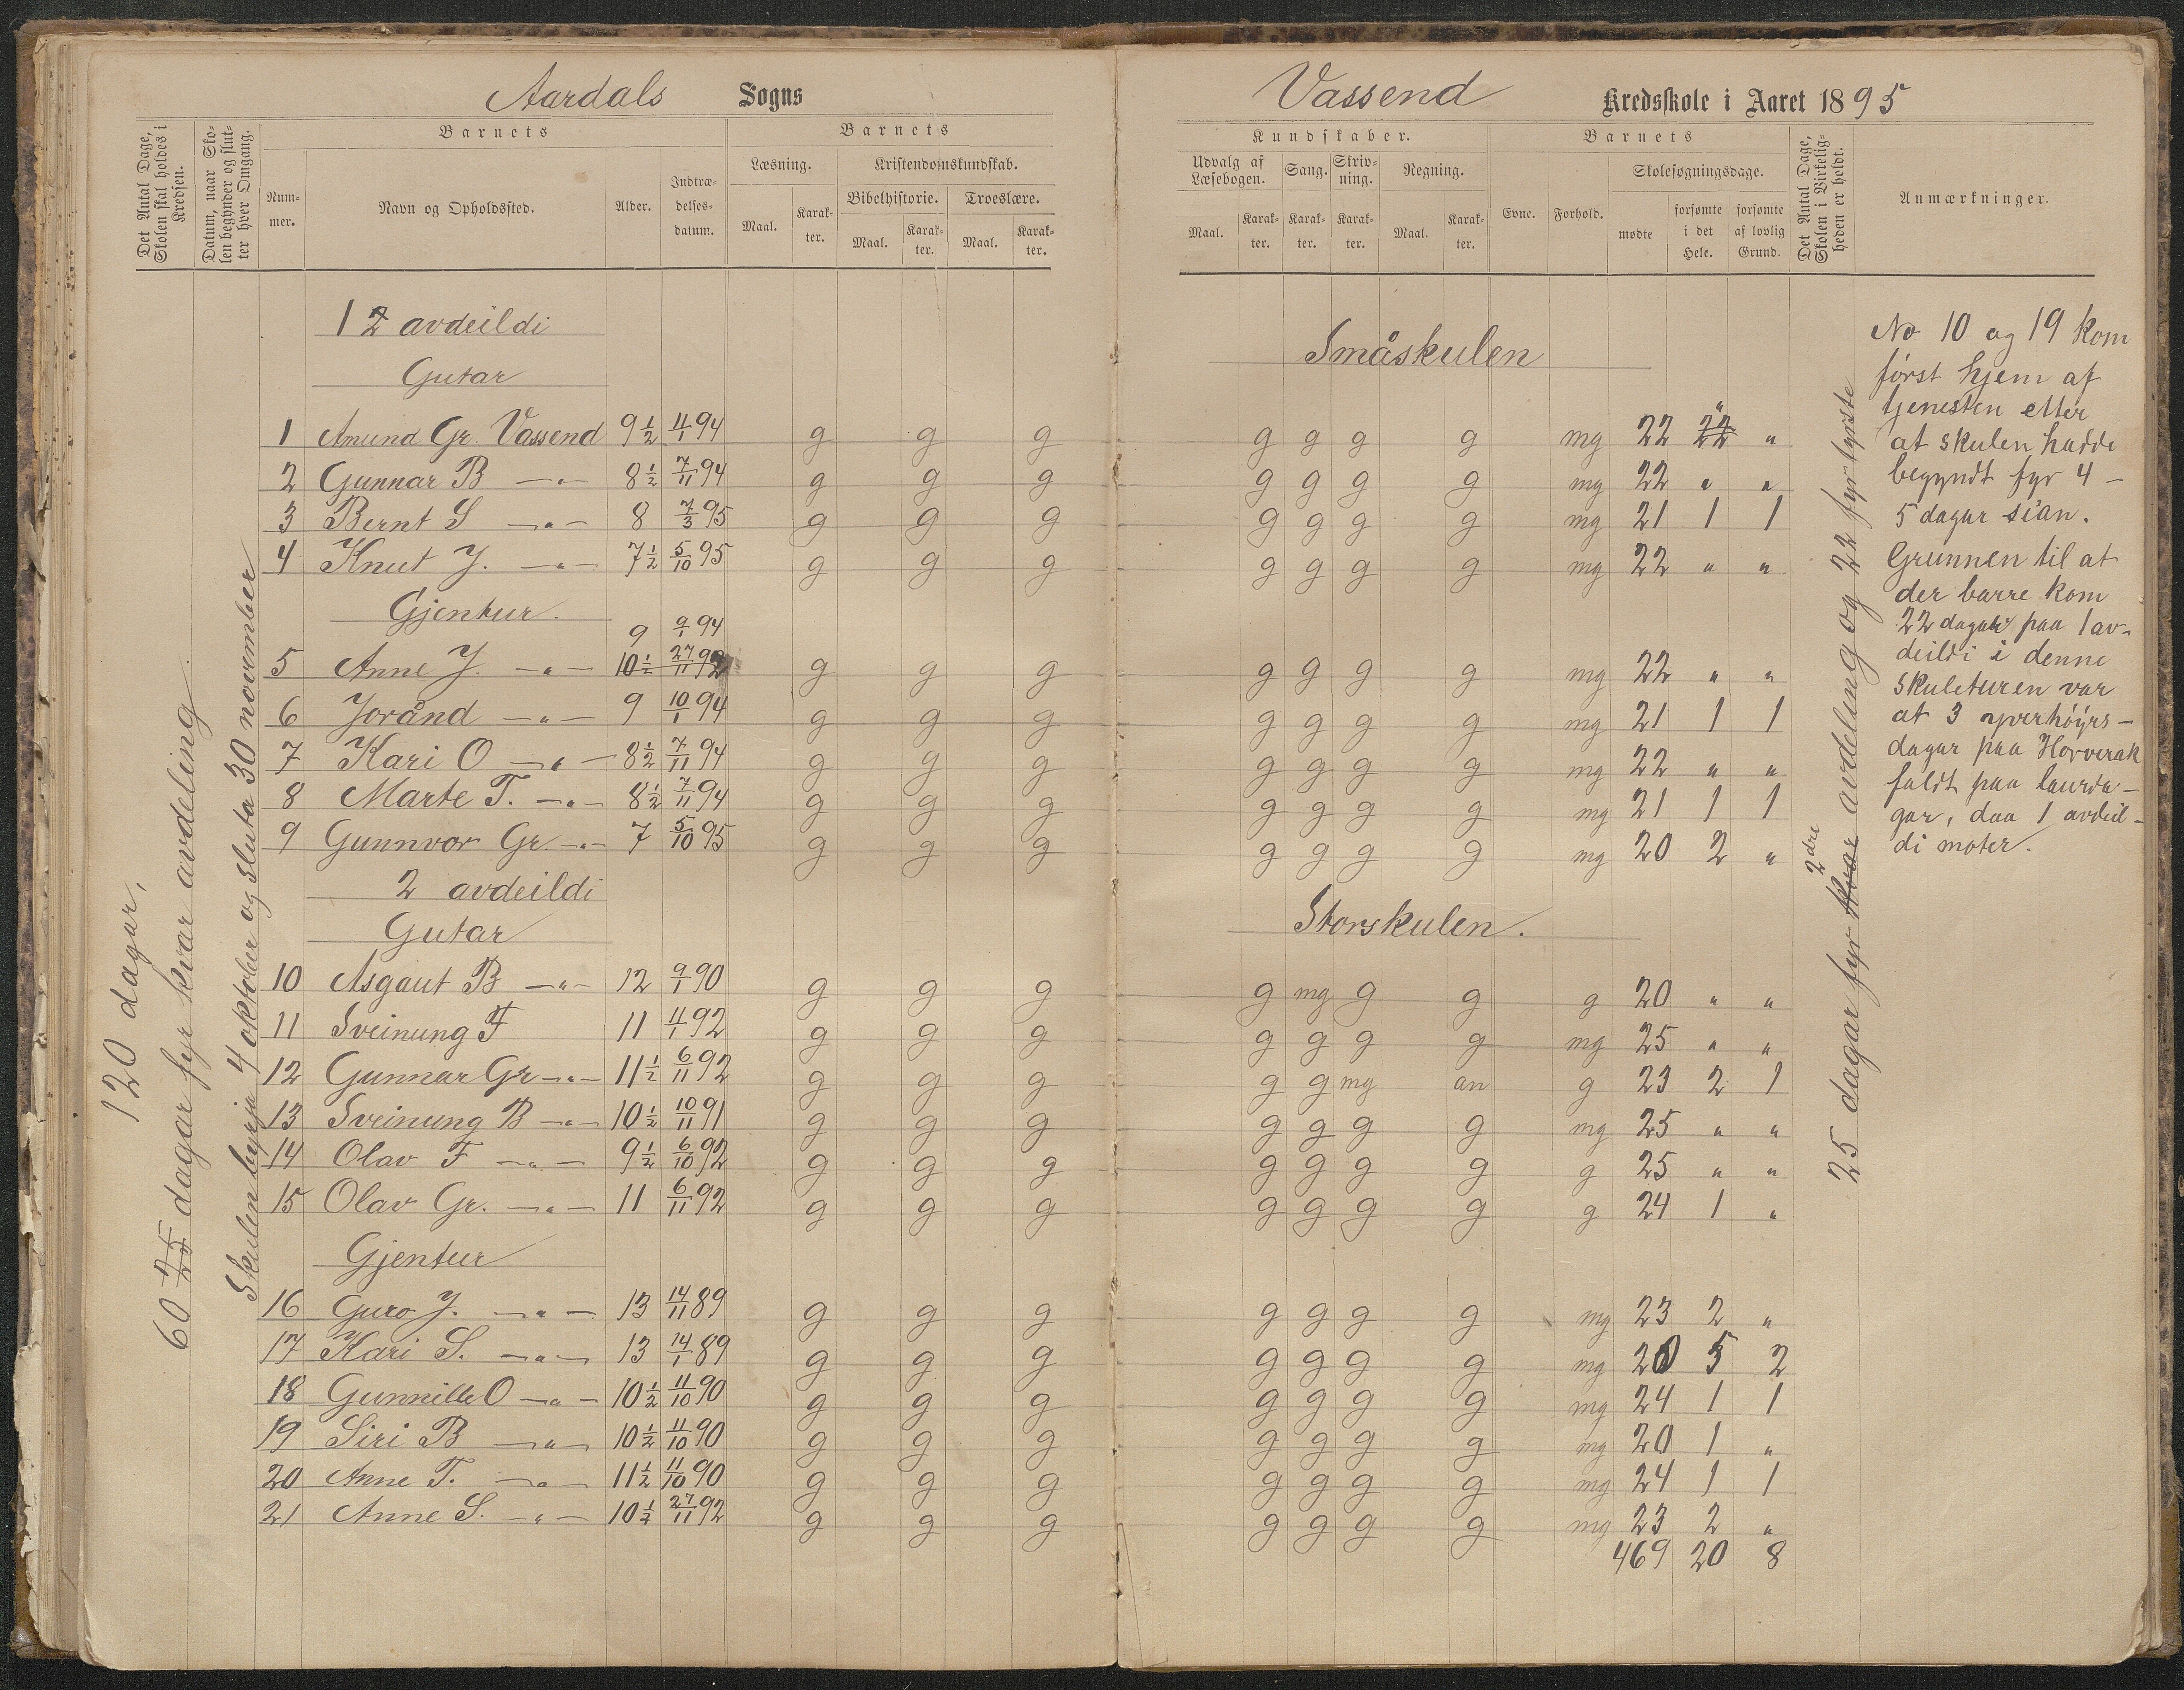 Aardals Sogns
Det Antal Dage, Skolen skal holdes i Kredsen.
Datum, naar Skolen begynder og slutter hver Omgang.
Barnets
Nummer.
Navn og Opholdssted.
Alder.
Indtrædelsesdatum.
Barnets
Læsning.
Kristendomskundskab.
Bibelhistorie.
Troeslære.
Maal.
Karakter.
Maal.
Karakter.
Maal.
Karakter.
120 dagar,
60 dagar fyr kvar avdeling
Skulen byrja 4 oktober og sluta 30 november
1 avdeildi
Gutar
1 Amund Gr. Vassend 9 1/2 11/1 94 g g g
2 Gunnar B —„— 8 1/2 7/11 94 g g g
3 Bernt S —„— 8 7/3 95 g g g
4 Knut J. —„— 7 1/2 5/10 95 g g g
Gjentur
9 9/1 94
5 Anne J. —„— 10 1/2 27/11 92 g g g
6 Jorånd —„— 9 10/1 94 g g g
7 Kari O —„— 8 1/2 7/11 94 g g g
8 Marte T. —„— 8 1/2 7/11 94 g g g
9 Gunnvor Gr. —„— 7 5/10 95 g g g
2 avdeildi
Gutar
10 Asgaut B —„— 12 9/1 90 g g g
11 Sveinung F 11 11/1 92 g g g
12 Gunnar Gr —„— 11 1/2 6/11 92 g g g
13 Sveinung B —„— 10 1/2 10/11 91 g g g
14 Olav F —„— 9 1/2 6/10 92 g g g
15 Olav Gr. —„— 11 6/11 92 g g g
Gjentur
16 Guro J. —„— 13 14/11 89 g g g
17 Kari S. —„— 13 14/1 89 g g g
18 Gunnille O —„— 10 1/2 11/10 90 g g g
19 Siri B —„— 10 1/2 11/10 90 g g g
20 Anne T. —„— 11 1/2 11/10 90 g g g
21 Anne S. —„— 10 1/2 27/11 92 g g g
Vassend Kredsskole i Aaret 1895
Kundskaber.
Udvalg af Læsebogen.
Sang.
Skrivning.
Regning.
Maal.
Karakter.
Karakter.
Karakter.
Maal.
Karakter.
Barnets
Evne.
Forhold.
Skolesøgningsdage.
mødte
forsømte i det Hele.
forsømte af lovlig Grund.
Det Antal Dage, Skolen i Virkeligheden er holdt.
Anmærkninger.
Småskulen
g g g g mg 22 „ „
g g g g mg 22 „ „
g g g g mg 21 1 1
g g g g mg 22 „ „
g g g g mg 22 „ „
g g g g mg 21 1 1
g g g g mg 22 „ „
g g g g mg 21 1 1
g g g g mg 20 2 „
Storskulen.
g mg g g g 20 „ „
g g g g mg 25 „ „
g g mg an g 23 2 1
g g g g mg 25 „ „
g g g g g 25 „ „
g g g g g 24 1 „
g g g g mg 23 2 „
g g g g mg 20 5 2
g g g g mg 24 1 1
g g g g mg 20 1 „
g g g g mg 24 1 1
g g g g mg 23 2 „
469 20 8
25 dagar fyr 2dre avdeling og 22 fyr fyrste
No 10 og 19 kom
först hjem af
tjenesten etter
at skulen hadde
begyndt fyr 4 –
5 dagar sian.
Grunnen til at
der barre kom
22 dagar paa 1 av-
deildi i denne
skuleturen var
at 3 yverhöyrs-
dagar paa Hovverak
faldt paa laurda-
gar, daa 1 avdeil-
di möter.